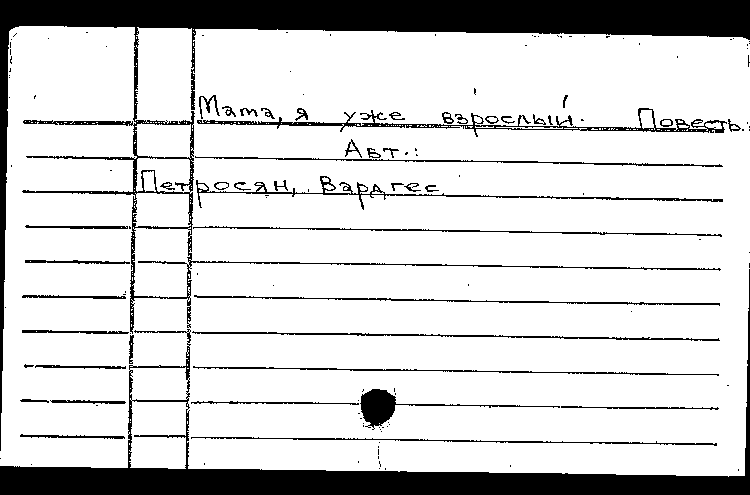 Мама, я уже взрослый. Повесть.
Авт.:
Петросян, Вардгес